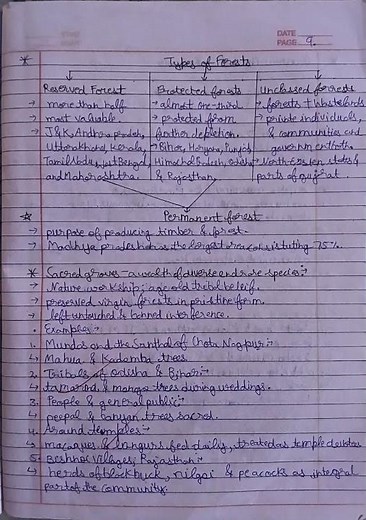 DATE
PAGE 9.
* Types of Forests
Reserved Forest
→ more than half.
→ most valuable.
→ J&K, Andhra pradesh,
Uttarakhand, Kerala,
Tamil Nadu, West Bengal,
and Maharashtra.
Protected forests
→ almost one-third
→ protected from
further depletion.
→ Bihar, Haryana, Punjab,
Himachal Pradesh, Odisha
& Rajasthan,
Unclassed forests
→ forests & wastelands
→ private individuals,
& communities and
government
→ North-Eastern states &
parts of gujrat.
☆ Permanent forest
→ purpose of producing timber & forest.
→ Madhya pradesh has the largest area constituting 75%.
* Sacred groves - a wealth of diverse and rare species:-
→ Nature worship; age old tribal belief.
→ preserved virgin forests in pristine form.
→ left untouched & banned interference.
. Examples:-
1. Mundas and the Santhal of Chota Nagpur:-
↳ Mahua & Kadamba trees
2. Tribals of odisha & Bihar:-
↳ tamarind & mango trees during weddings.
3. People & general public:-
↳ peepal & banyan trees sacred.
4. Around temples:-
↳ macaques & langurs fed daily, treated as temple devotees
5. Beshnoi Villages, Rajasthan:-
↳ herds of blackbuck, nilgai & peacocks as integral
part of the community.